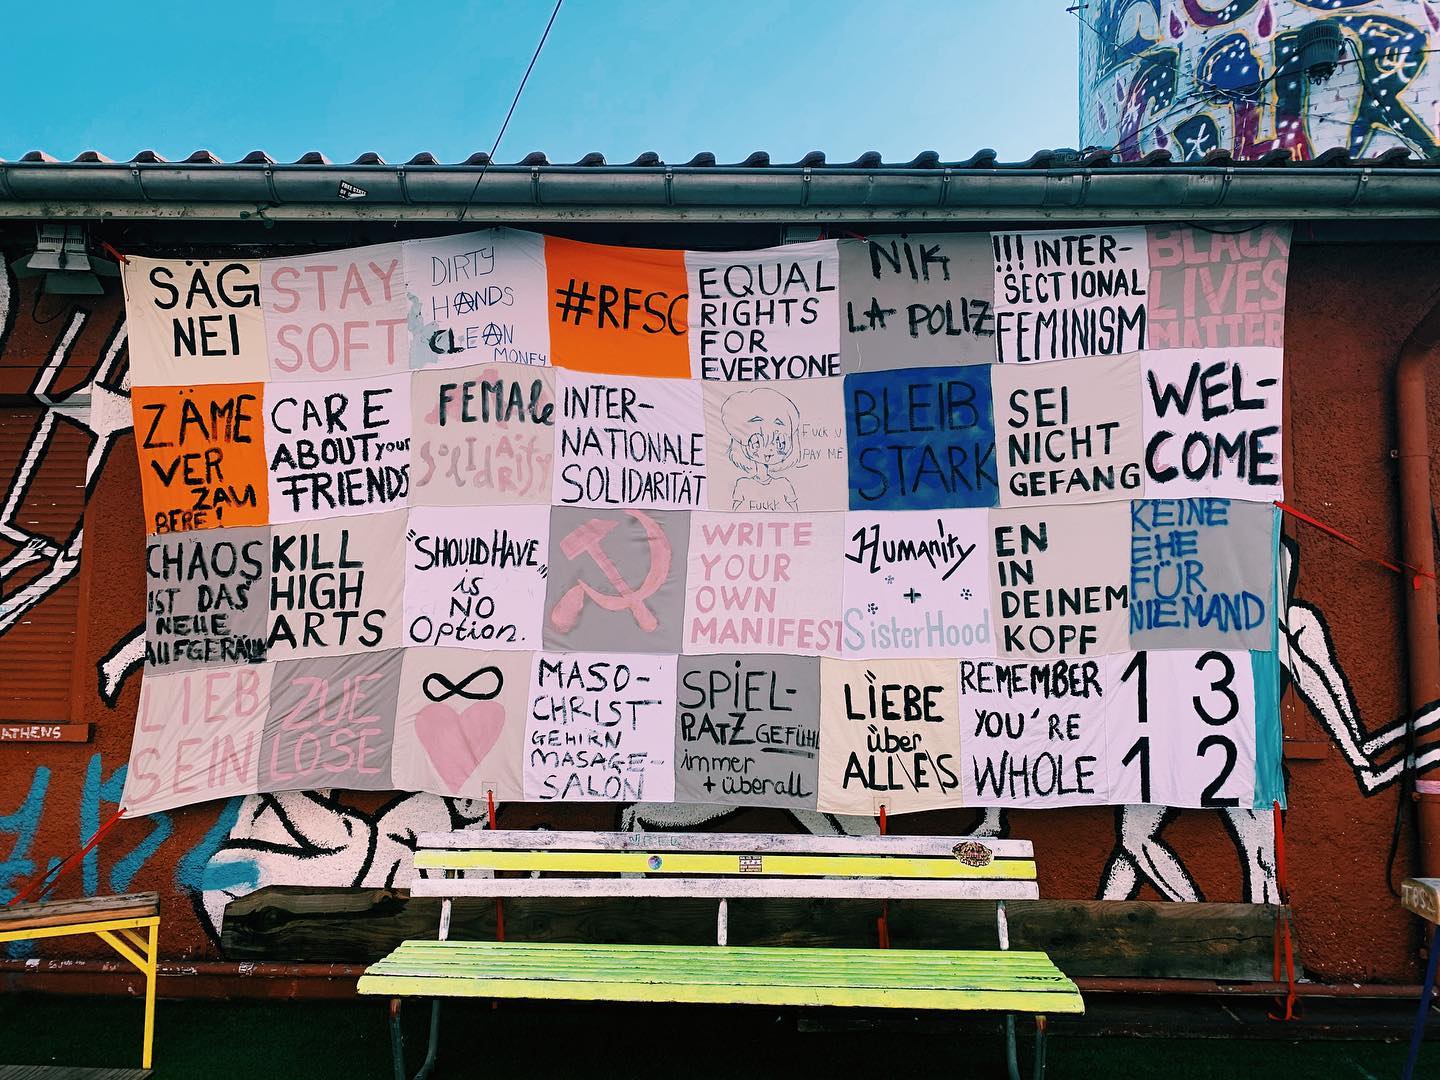 SÄG
NEI
STAY
SOFT
DIRTY
HANDS
CLEAN
MONEY
#RFSC
EQUAL
RIGHTS
FOR
EVERYONE
NIK
LA POLIZ
!!! INTER-
SECTIONAL
FEMINISM
BLACK
LIVES
MATTER
ZÄME
VER
ZAU
BERE!
CARE
ABOUT your
FRIENDS
FEMALE
SOlIdArity
INTER-
NATIONALE
SOLIDARITÄT
FUCK U
PAY ME
FUCKK
BLEIB
STARK
SEI
NICHT
GEFANG
WEL-
COME
CHAOS
IST DAS
NEUE
AUFGERÄUM
KILL
HIGH
ARTS
"SHOULD HAVE"
is
NO
Option.
WRITE
YOUR
OWN
MANIFEST
Humanity
+
SisterHood
EN
IN
DEINEM
KOPF
KEINE
EHE
FÜR
NIEMAND
LIEB
SEIN
ZUE
LOSE
MASO-
CHRIST
GEHIRN
MASAGE-
SALON
SPIEL-
PLATZ GEFÜHL
immer
+ überall
LIEBE
über
ALL\E\S
REMEMBER
YOU'RE
WHOLE
1 3
1 2
ATHENS